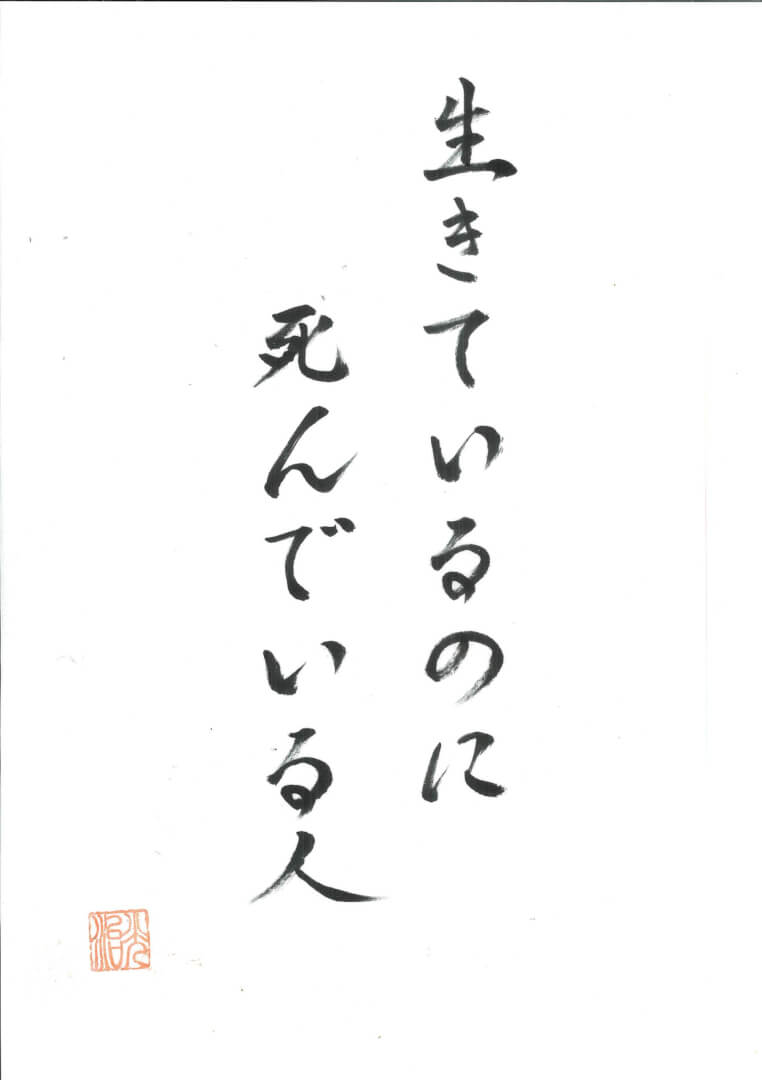 生きているのに
死んでいる人